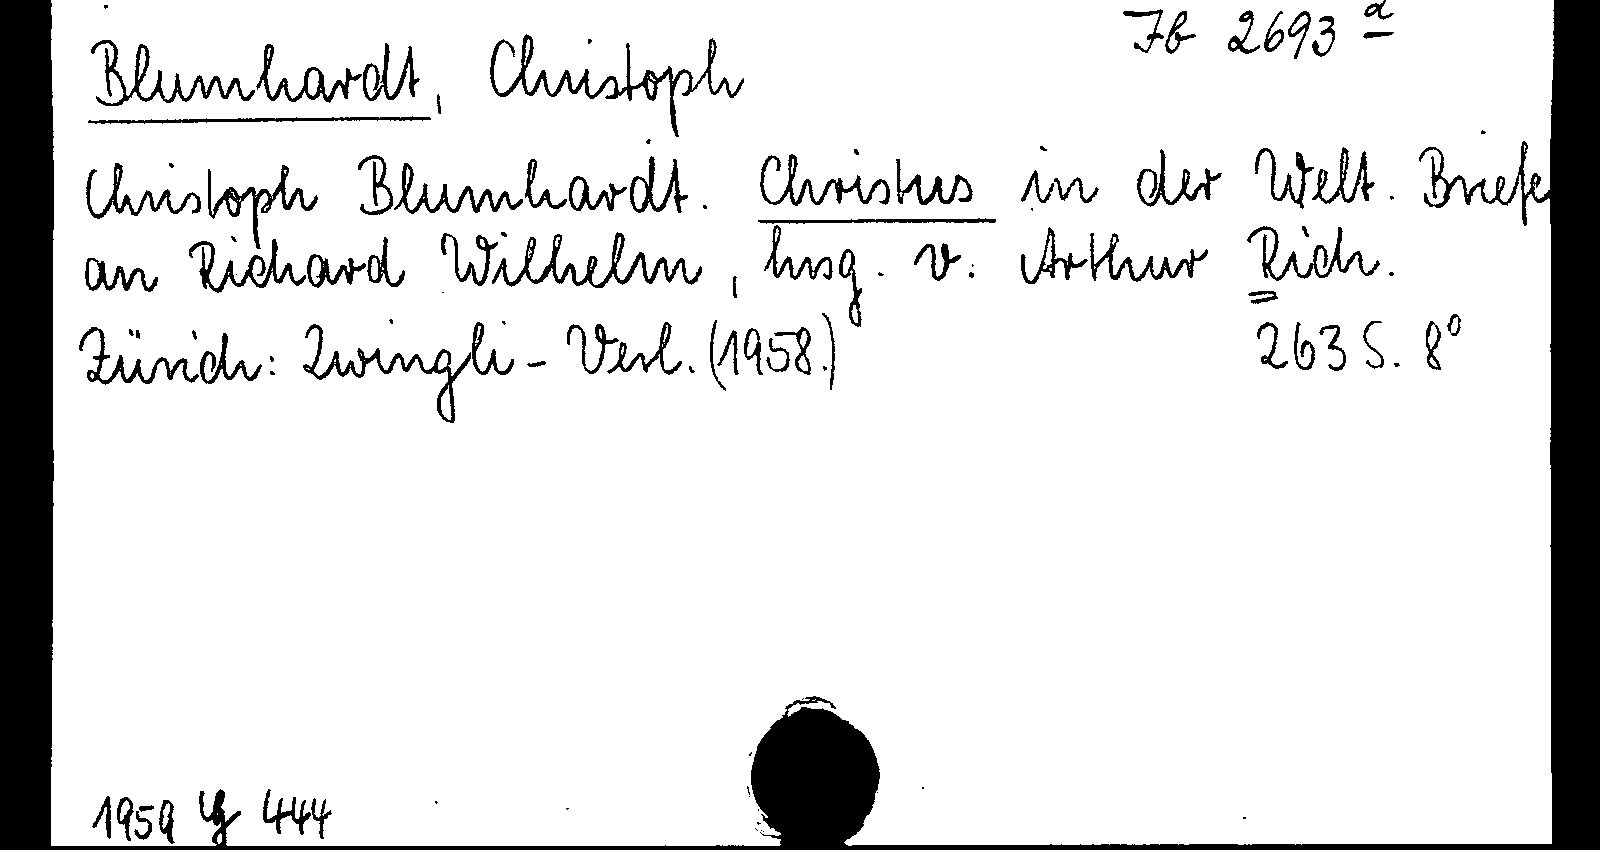 Jb 2693 a
Blumhardt, Christoph
Christoph Blumhardt. Christus in der Welt. Briefe
an Richard Wilhelm, hrsg. v. Arthur Rich.
Zürich: Zwingli-Verl. (1958.) 263 S. 8°
1959 g 444